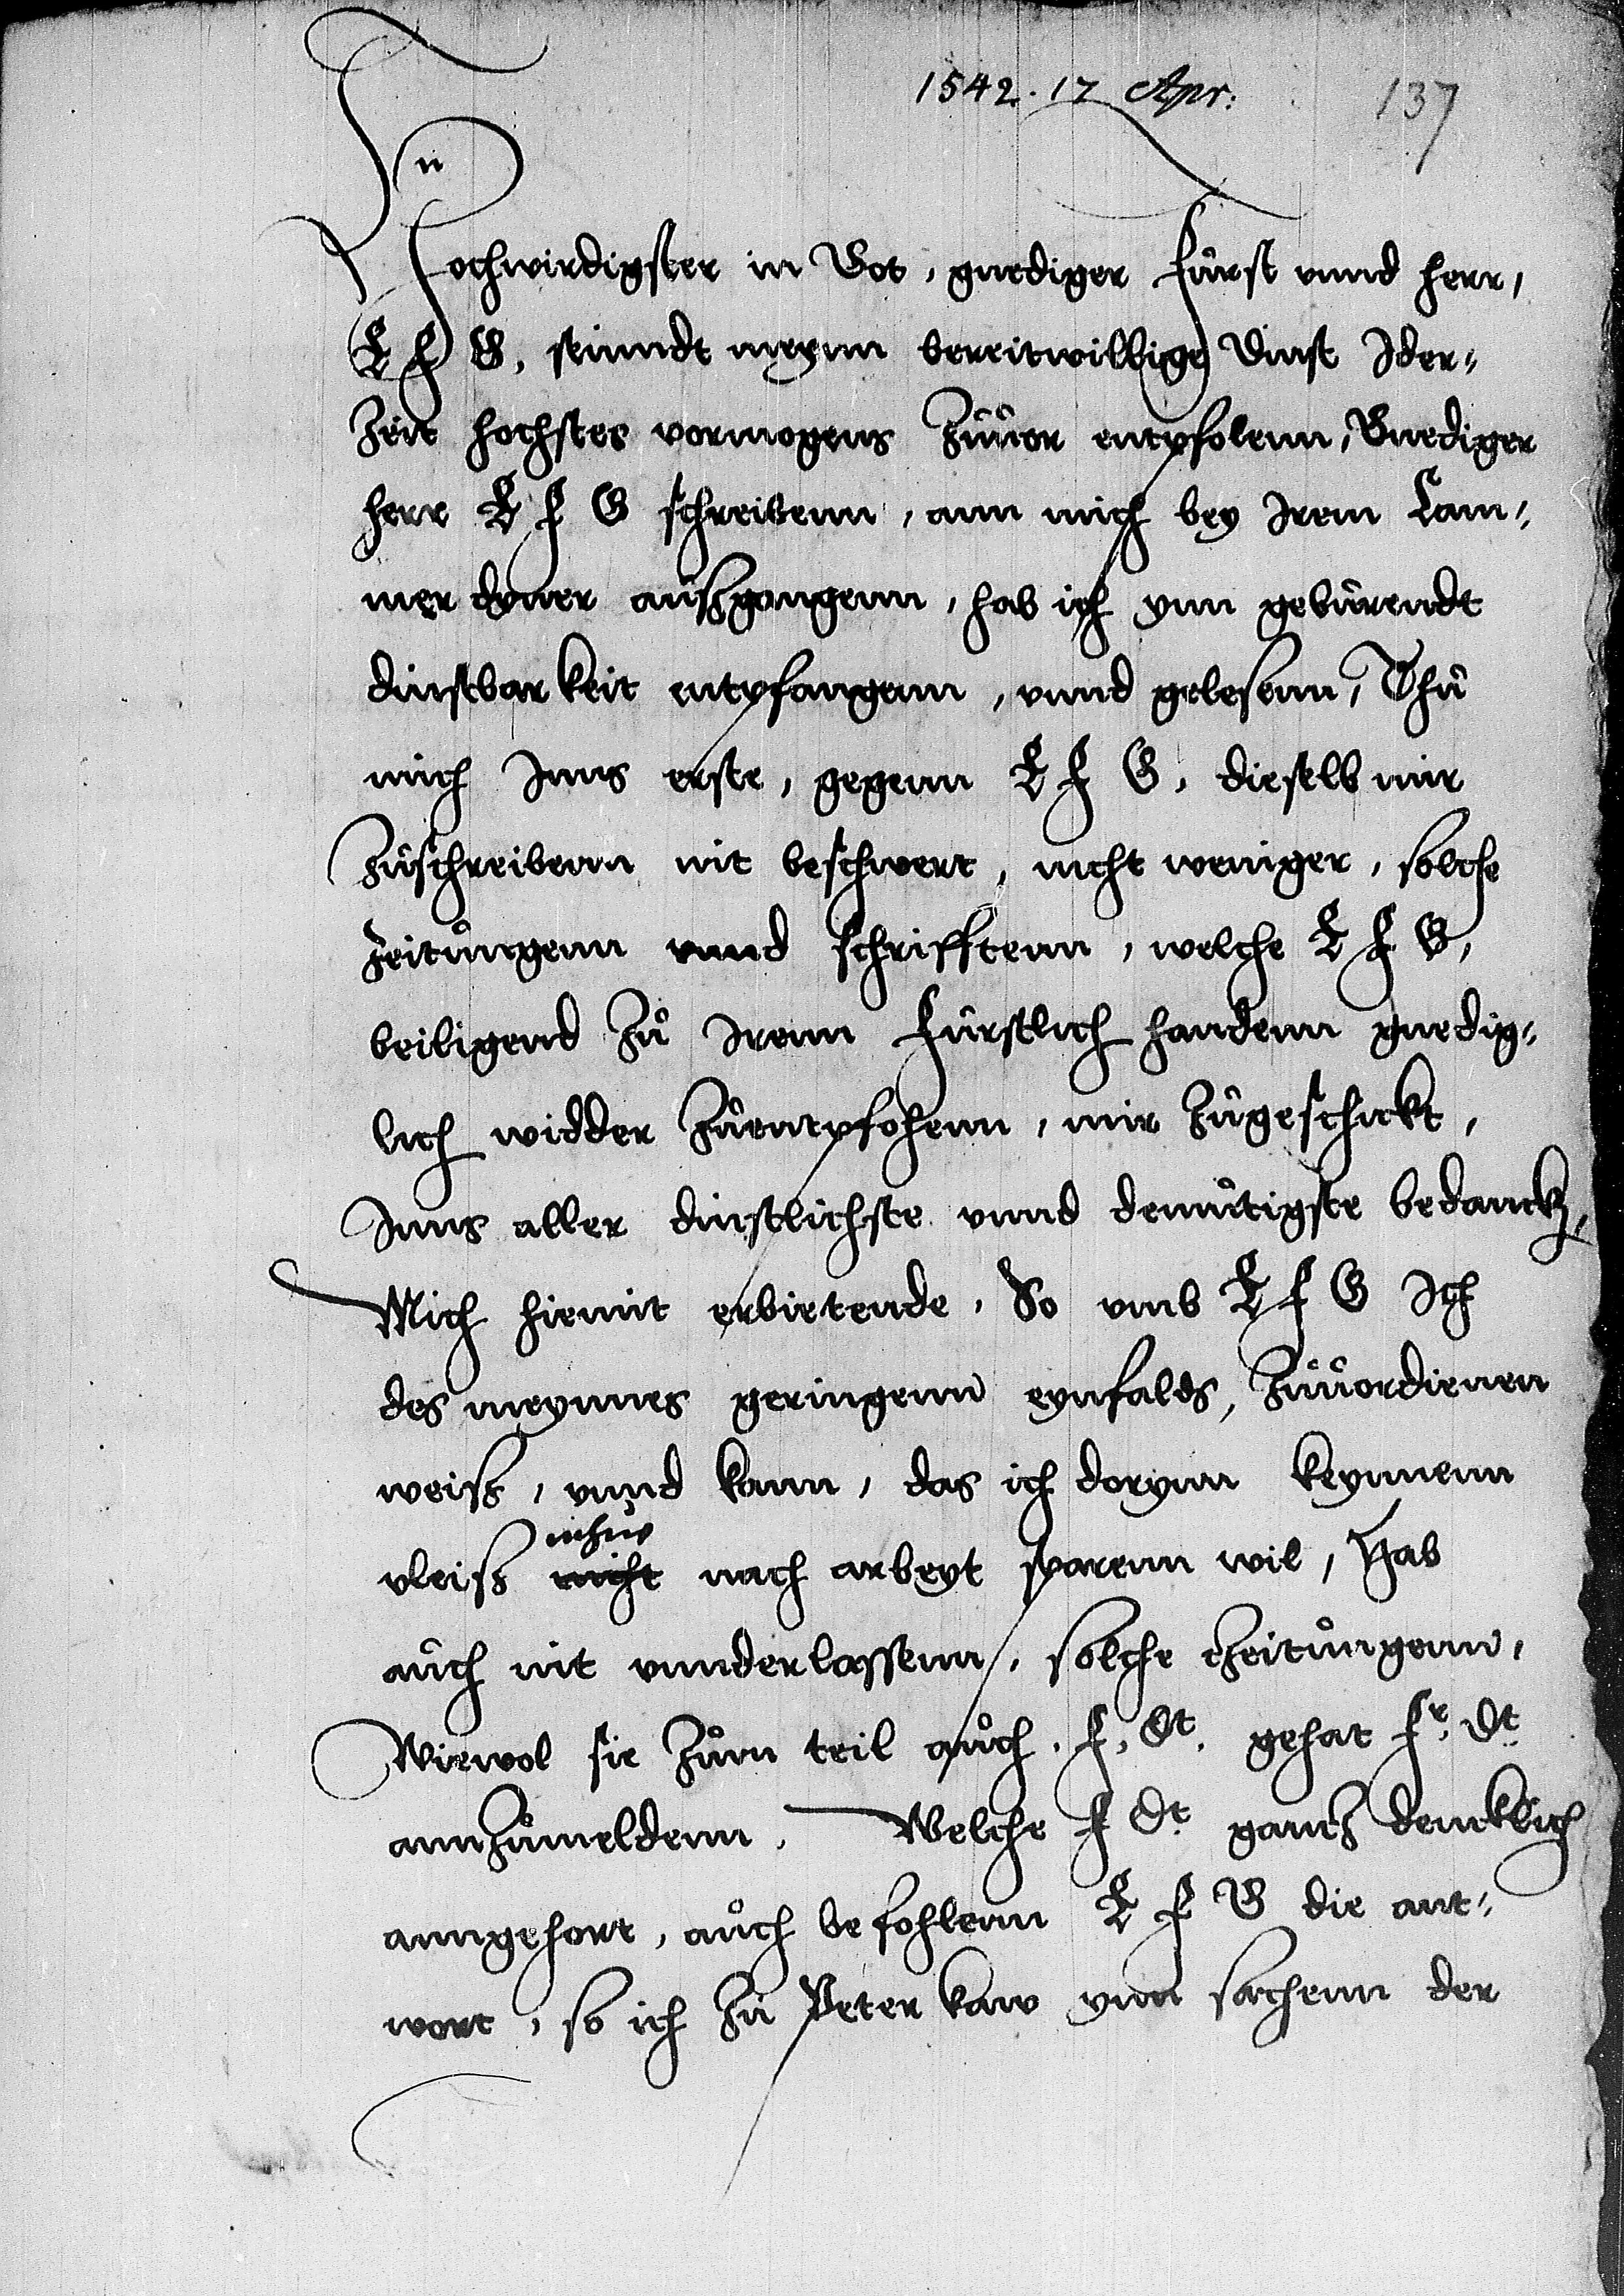 1542. 17 Apr: 137
Hochwirdigster in Got, gnediger Fürst vnnd herr,
E F G, seinndt meynn bereitwillige dinst Ider-
Zeit hochstes vormogens Zůuor entpfolenn, Gnediger
herr E F G schreibenn, ann mich bey Irem Cam-
mer dyner außgangenn, hab ich ynn gebůrendt
dinstbarkeit entpfangenn, vnnd gelesenn, Thů
mich Inns erste, gegenn E F G, dieselb mir
Zůschreibenn nit beschwert, nicht weniger, solche
Zeitůngenn vnnd schrifftenn, welche E F G,
beiligend Zů Irenn Fürstlich handenn gnedig-
lich widder Zůentpfohenn, mir Zůgeschickt,
Inns aller dinstlichste vnnd demůtigste bedanck,
Mich hiemit erbietende, So vmb E F G Ich
des meynnes geringenn eynfalds, Zůuordienen
weiß, vnnd kann, das ich dorynn keynnenn
vleiß nicht nach arbeyt sparenn wil, Hab
aůch nit vnnderlassenn, solche tzeitůngenn,
Wiewol sie Zům teil aůch. F. Dt. gehat Fr. Dt
annZůmeldenn. Welche F Dt gantz dencklich
anngehort, aůch befohlenn E F G die ant-
wort, so ich Zů Peterkaw ynn sachenn der